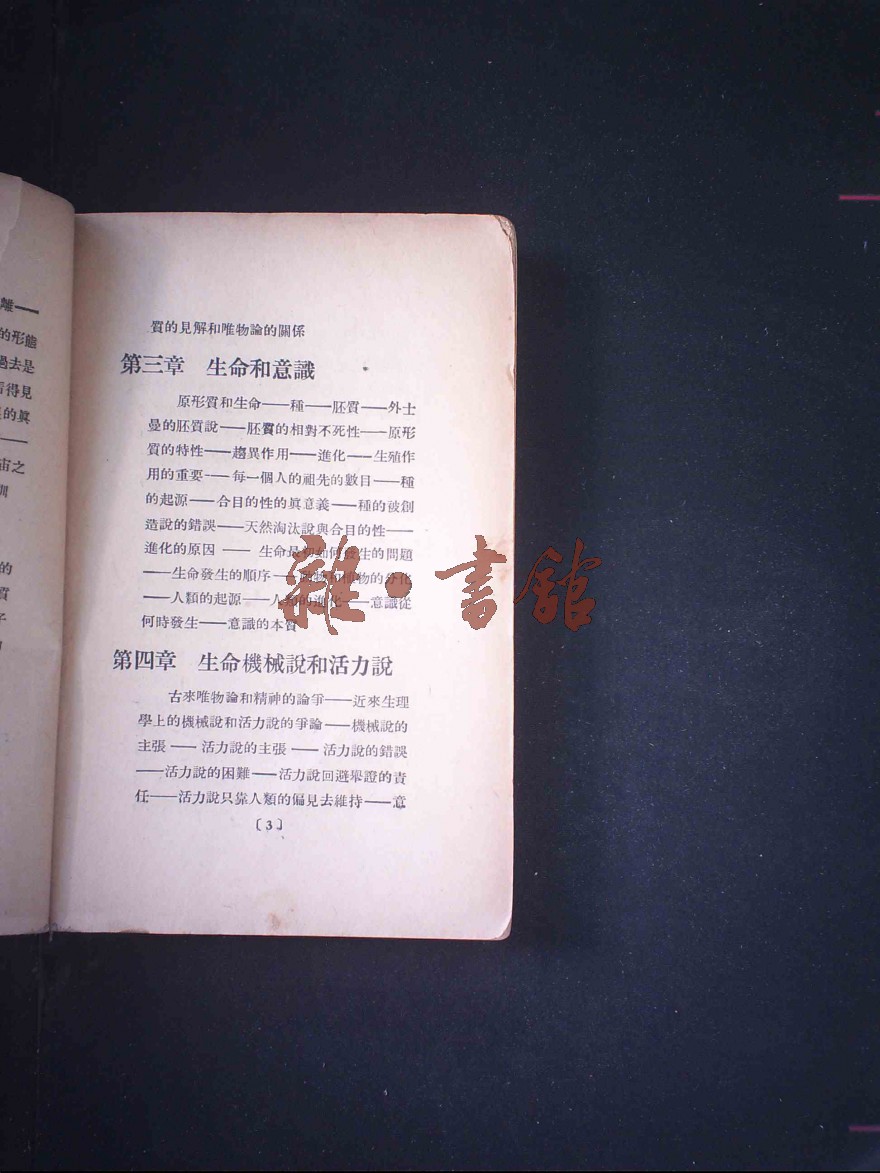 離——
的形態
過去是
看得見
的眞
——
宙之
的
質
質的見解和唯物論的關係
第三章 生命和意識
原形質和生命——種——胚質——外士
曼的胚質說——胚質的相對不死性——原形
質的特性——趨異作用——進化——生殖作
用的重要——每一個人的祖先的數目——種
的起源——合目的性的眞意義——種的被創
造說的錯誤——天然淘汰說與合目的性——
進化的原因——生命最初如何發生的問題
——生命發生的順序——動物和植物的分化
——人類的起源——人類的進化——意識從
何時發生——意識的本質
第四章 生命機械說和活力說
古來唯物論和精神的論爭——近來生理
學上的機械說和活力說的爭論——機械說的
主張——活力說的主張——活力說的錯誤
——活力說的困難——活力說回避舉證的責
任——活力說只靠人類的偏見去維持——意
〔3〕
雜·書館